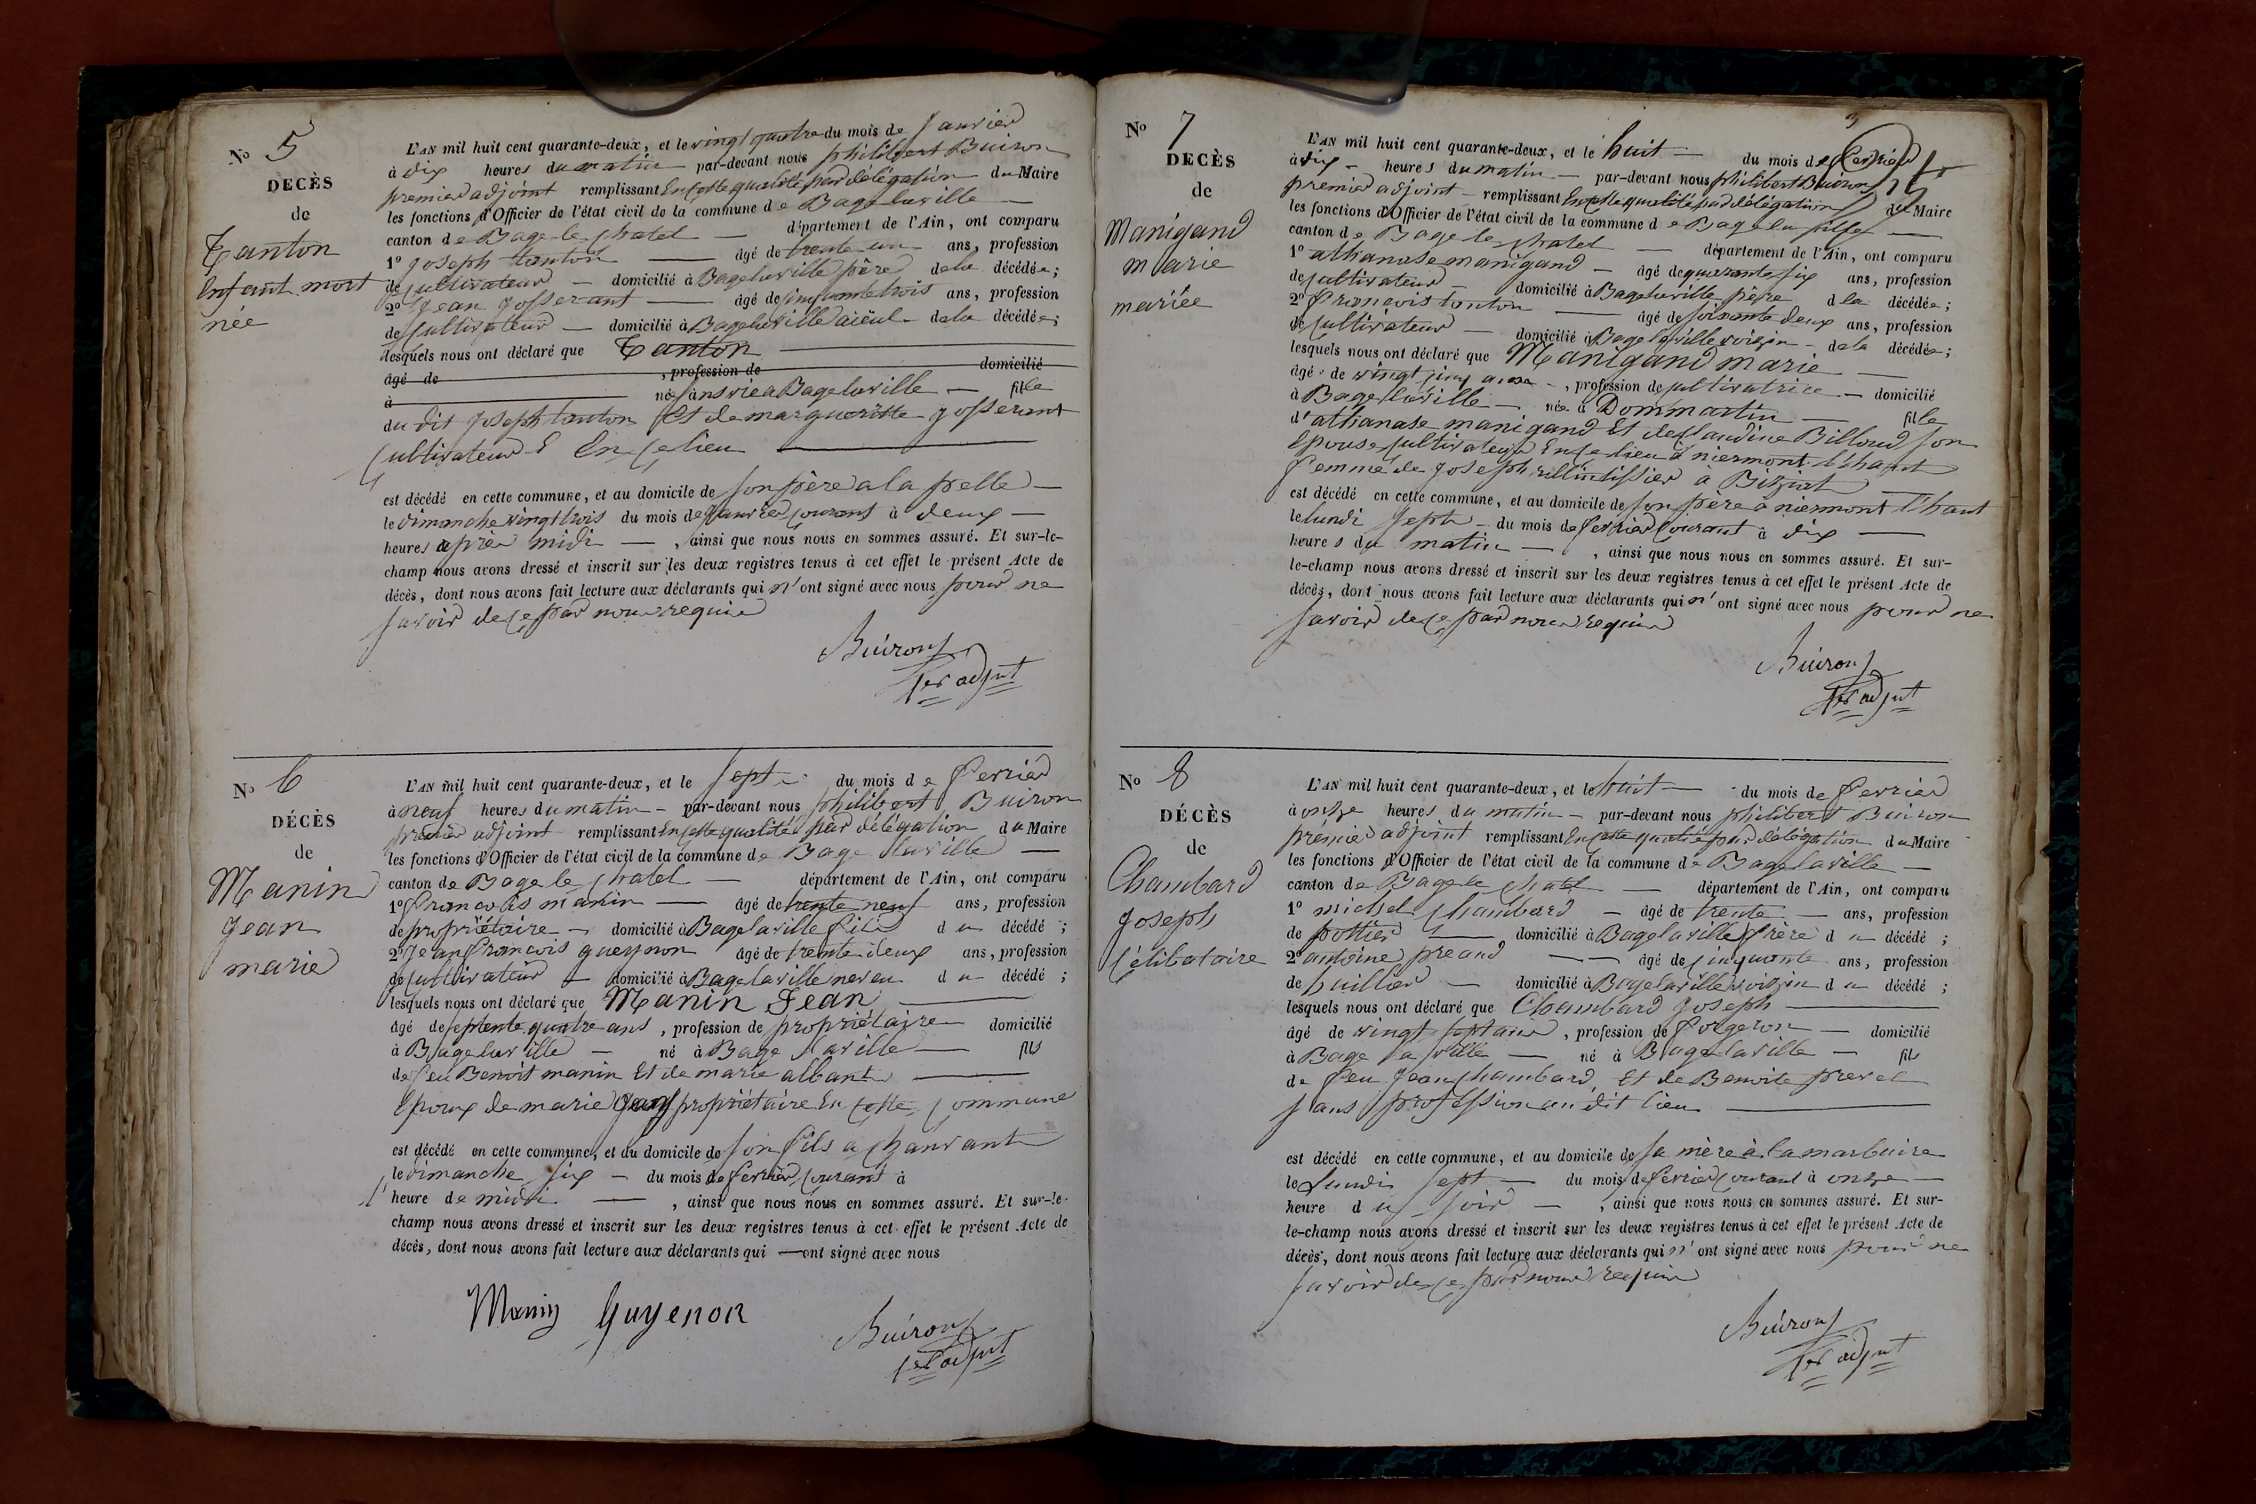 No 5
DECÈS
de
Tanton
Enfant mort
née
L'AN mil huit cent quarante-deux, et le vingt quatre du mois de Janvier
à dix heures du matin par-devant nous philibert Buiron
premier adjoint remplissant En cette qualité par délégation du Maire
les fonctions d'Officier de l'état civil de la commune de Bage laville
canton de Bage le chatel département de l'Ain, ont comparu
1o joseph tanton âgé de trente un ans, profession
de cultivateur domicilié à Bagelaville père de la décédée;
2o Jean josserant âgé de cinquante trois ans, profession
de cultivateur domicilié à Bagelaville aïeul de la décédée;
lesquels nous ont déclaré que Tanton
âgé de , profession de domicilié
à née sans vie a Bagelaville fille
du dit joseph tanton Et de marguerite josserant
cultivateurs En ce lieu
est décédé en cette commune, et au domicile de son père a la pelle
le dimanche vingt trois du mois de janvier courant à deux
heures après midi , ainsi que nous nous en sommes assuré. Et sur-le-
champ nous avons dressé et inscrit sur les deux registres tenus à cet effet le présent Acte de
décès, dont nous avons fait lecture aux déclarants qui n'ont signé avec nous pour ne
savoir de ce par nous requis
Buiron
1er adjnt
No 6
DÉCÈS
de
Manin
Jean
marié
L'AN mil huit cent quarante-deux, et le sept du mois de fevrier
à neuf heures du matin par-devant nous philibert Buiron
premier adjoint remplissant En cette qualité par délégation du Maire
les fonctions d'Officier de l'état civil de la commune de Bage laville
canton de Bage le chatel département de l'Ain, ont comparu
1o francois manin âgé de trente neuf ans, profession
de propriétaire domicilié à Bagelaville fils du décédé;
2o Jean francois gueynon âgé de trente deux ans, profession
de cultivateur domicilié à Bagelaville neveu du décédé;
lesquels nous ont déclaré que Manin Jean
âgé de septente quatre ans, profession de propriétaire domicilié
à Bagelaville né à Bage laville fils
de feu Benoit manin Et de marie albant
Epoux de marie propriétaire En cette commune
est décédé en cette commune, et au domicile de son fils a chanvant
le dimanche six du mois de fevrier courant à
l'heure de midi , ainsi que nous nous en sommes assuré. Et sur-le-
champ nous avons dressé et inscrit sur les deux registres tenus à cet effet le présent Acte de
décès, dont nous avons fait lecture aux déclarants qui ont signé avec nous
Manin Guyenon
Buiron
1er adjnt
3
No 7
DECÈS
de
Manigand
marie
mariée
L'AN mil huit cent quarante-deux, et le huit du mois de fevrier
à dix heures du matin par-devant nous philibert Buiron
premier adjoint remplissant En cette qualité par délégation du Maire
les fonctions d'Officier de l'état civil de la commune de Bage la ville
canton de Bage le chatel département de l'Ain, ont comparu
1o athanase manigand âgé de quarante six ans, profession
de cultivateur domicilié à Bagelaville père de la décédée;
2o francois tanton âgé de soixante deux ans, profession
de cultivateur domicilié à Bagelaville voisin de la décédée;
lesquels nous ont déclaré que Manigand marie
âgé de vingt cinq ans, profession de cultivatrice domicilié
à Bagelaville née à Dommartin fille
d'athanase manigand Et de claudine Billoud son
Epouse cultivateurs En ce lieu à niermont l'haut
femme de joseph vullin tissier à Biziat
est décédé en cette commune, et au domicile de son père à niermont l'haut
le lundi sept du mois de fevrier courant à dix
heures du matin , ainsi que nous nous en sommes assuré. Et sur-
le-champ nous avons dressé et inscrit sur les deux registres tenus à cet effet le présent Acte de
décès, dont nous avons fait lecture aux déclarants qui n'ont signé avec nous pour ne
savoir de ce par nous requis
Buiron
1er adjnt
No 8
DÉCÈS
de
Chambard
joseph
célibataire
L'AN mil huit cent quarante-deux, et le huit du mois de fevrier
à onze heures du matin par-devant nous philibert Buiron
premier adjoint remplissant En cette qualité par délégation du Maire
les fonctions d'Officier de l'état civil de la commune de Bage laville
canton de Bage le chatel département de l'Ain, ont comparu
1o michel chambard âgé de trente ans, profession
de pottier domicilié à Bagelaville frère du décédé;
2o antoine preaud âgé de cinquante ans, profession
de huillier domicilié à Bagelaville voisin du décédé;
lesquels nous ont déclaré que Chambard joseph
âgé de vingt sept ans, profession de forgeron domicilié
à Bage la ville né à Bagelaville fils
de feu Jean chambard, Et de Benoite prevel
sans profession au dit lieu
est décédé en cette commune, et au domicile de sa mère à la marbuire
le Lundi sept du mois de fevrier courant à onze
heure du soir , ainsi que nous nous en sommes assuré. Et sur-
le-champ nous avons dressé et inscrit sur les deux registres tenus à cet effet le présent Acte de
décès, dont nous avons fait lecture aux déclarants qui n'ont signé avec nous pour ne
savoir de ce par nous requis
Buiron
1er adjnt